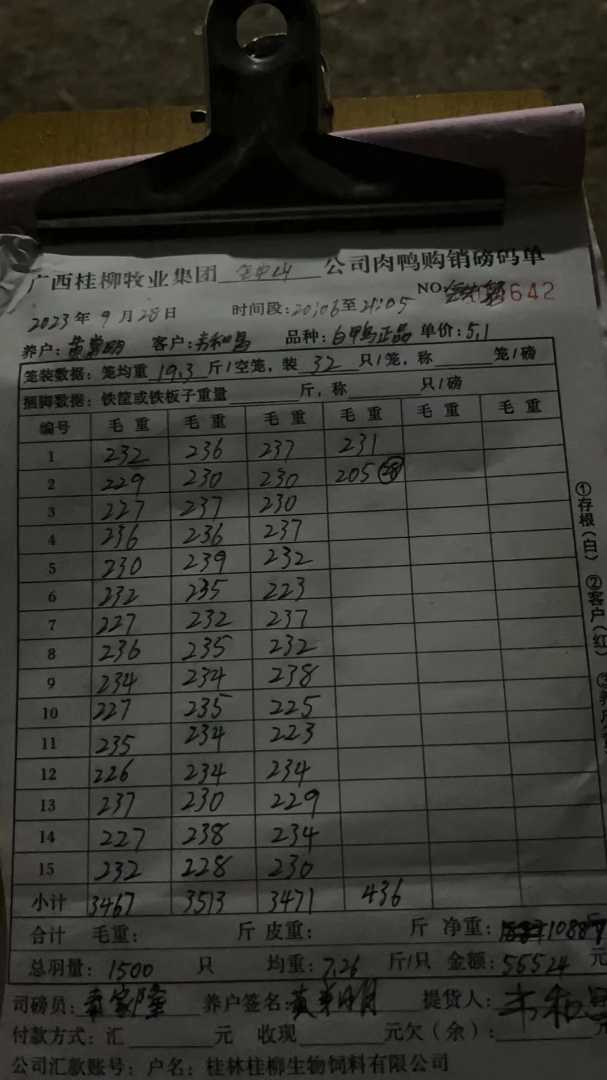 广西桂柳牧业集团 公司肉鸭购销磅码单
NO 642
2023年9月28日 时间段:20:06至21:05
养户: 客户:韦和昌 品种:白鸭正品 单价:5.1
笼装数据:笼均重 19.3 斤/空笼,装 32 只/笼,称 笼/磅
捆脚数据:铁筐或铁板子重量 斤,称 只/磅
编号 毛重 毛重 毛重 毛重 毛重 毛重
1 232 236 237 231
2 229 230 230 205 (28)
3 227 237 230
4 236 236 237
5 230 239 232
6 232 235 223
7 227 232 237
8 236 235 232
9 234 234 238
10 227 235 225
11 235 234 223
12 226 234 234
13 237 230 229
14 227 238 234
15 232 228 230
小计 3467 3513 3471 436
合计 毛重: 斤 皮重: 斤 净重: 10887
总羽量: 1500 只 均重: 7.26 斤/只 金额: 55524 元
司磅员: 养户签名: 提货人:
付款方式:汇 元 收现 元欠(余): 元
公司汇款账号:户名:桂林桂柳生物饲料有限公司
①存根(白) ②客户(红)